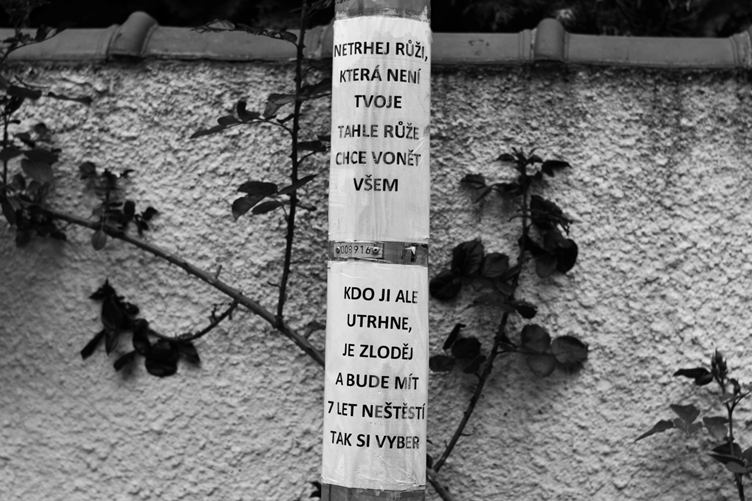 NETRHEJ RŮŽI,
KTERÁ NENÍ
TVOJE
TAHLE RŮŽE
CHCE VONĚT
VŠEM
008916
KDO JI ALE
UTRHNE,
JE ZLODĚJ
A BUDE MÍT
7 LET NEŠTĚSTÍ
TAK SI VYBER